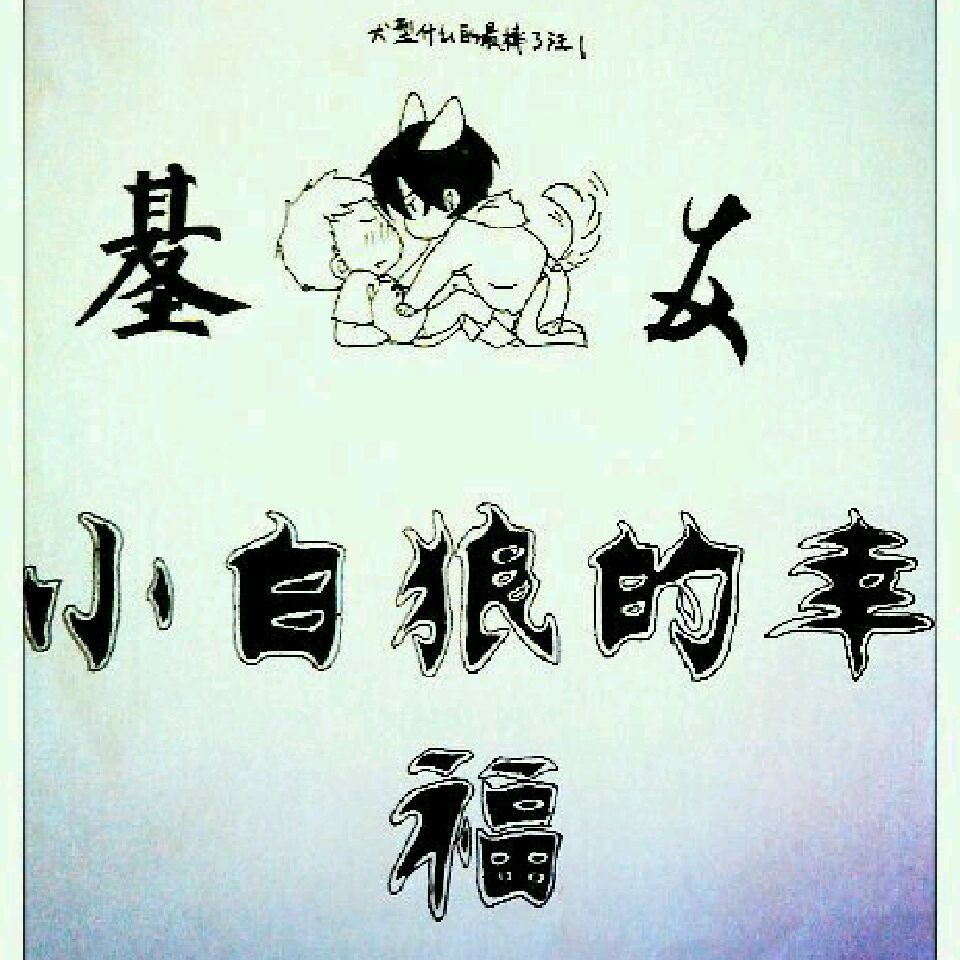 犬型什么的最棒了汪！
基友
小白狼的幸
福